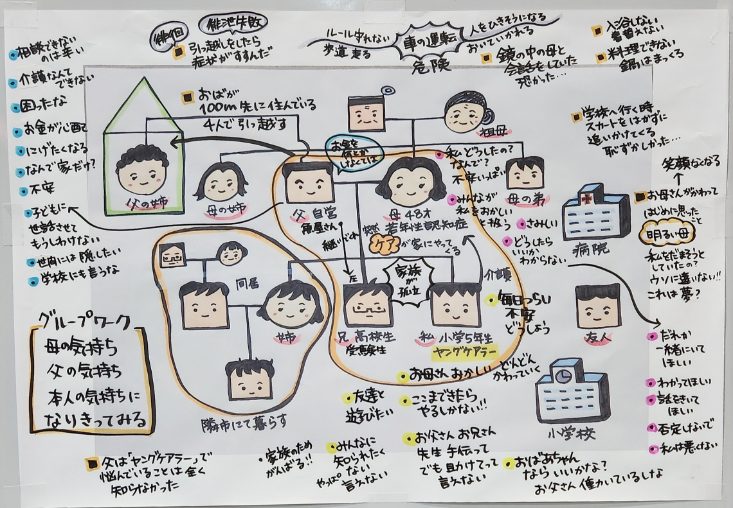 相談できない
のは辛い
介護なんて
できない
困ったな
お金が心配で
にげたくなる
なんで家だけ?
不安
子どもに
世話させて
もうしわけない
世間には隠したい
学校にも言うな
徘徊
引っ越しをしたら
症状がすすんだ
おばが
100m先に住んでいる
4人で引っ越す
ルール守れない
歩道走る
車の運転
危険
人をひきそうになる
おいていかれる
鏡の中の母と
会話をしていた
恐かった…
入浴しない
着替えない
料理できない
鍋はまっくろ
学校へ行く時
スカートをはかずに
追いかけてくる
恥ずかしかった…
祖母
父の姉
母の姉
父 自営
母 48才
若年性認知症
母の弟
お金を
何とかし
なくては
私どうしたの?
なんで?
不安いっぱい
みんなが
私をおかしい
と扱う
さみしい
どうしたら
いいか
わからない
ケアが家にやってくる
家族が
孤立
介護
病院
同居
姉
隣市にて暮らす
兄 高校生
受験生
私 小学5年生
ヤングケアラー
友人
小学校
毎日つらい
不安
どうしよう
お母さんおかしい どんどん
かわっていく
友達と
遊びたい
ここまできたら
やるしかない!!
笑顔なくなる
お母さんがかわって
はじめに思ったこと
明るい母
私をだまそうと
していたの?
ウソに違いない!!
これは夢?
だれか
一緒にいて
ほしい
わかってほしい
話をきいて
ほしい
否定しないで
私は悪くない
グループワーク
母の気持ち
父の気持ち
本人の気持ちに
なりきってみる
父は「ヤングケアラー」で
悩んでいることは全く
知らなかった
家族のため
がんばる!!
みんなに
知られたく
ない
やっぱ言えない
お父さん お兄さん
先生 手伝って
でも助けてって
言えない
おばあちゃん
ならいいかな?
お父さん働かいているしな